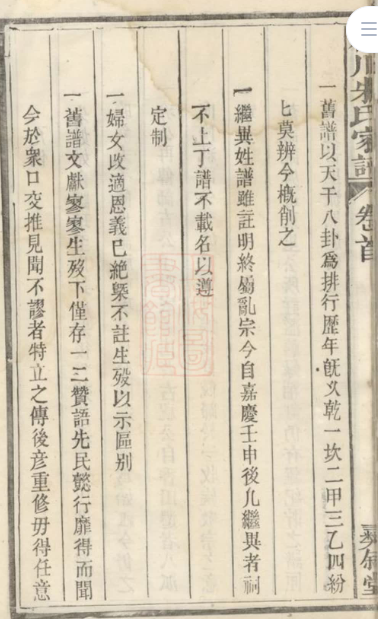 一舊譜以天干八卦為排行歷年旣久乾一坎二甲三乙四紛
匕莫辨今槪削之
一繼異姓譜雖註明終屬亂宗今自嘉慶壬申後凡繼異者祠
不上丁譜不載名以遵
定制
一婦女改適恩義已絶槩不註生殁以示區别
一舊譜文獻寥寥生殁下僅存一二贊語先民懿行靡得而聞
今於衆口交推見聞不謬者特立之傳後彥重修毋得任意
氏家譜
卷首
彝倫堂